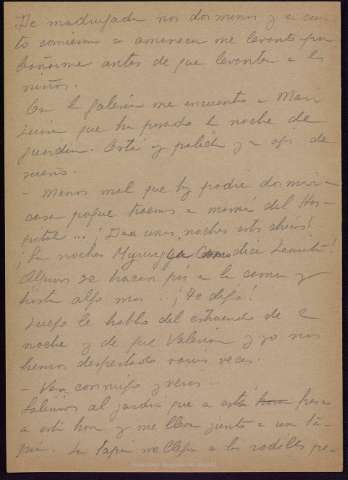 De madrugada nos dormimos y a cuan
to comienza a amanecer me levanto para
bañarme antes de que levanten a los
niños.
En la galería me encuentro a Mari
Luisa que ha pasado la noche de
guardia. Está y pálida y a ojos de
sueño.
- Menos mal que hoy podré dormir en
casa porque traemos a mamá del Hos-
pital ... ¡Dan unas noches estos chicos!
¡La noche dice
Algunos se hacen pis a la cama y
hasta algo mas.. ¡Te digo!
Luego le hablo del estruendo de la
noche y de que Valeria y yo nos
hemos despertado varias veces.
- Ven conmigo y verás.
Salimos al jardín que a está fresco
a esta hora y me lleva junto a un ta-
piz. La tapia me llega a las rodillas pe-